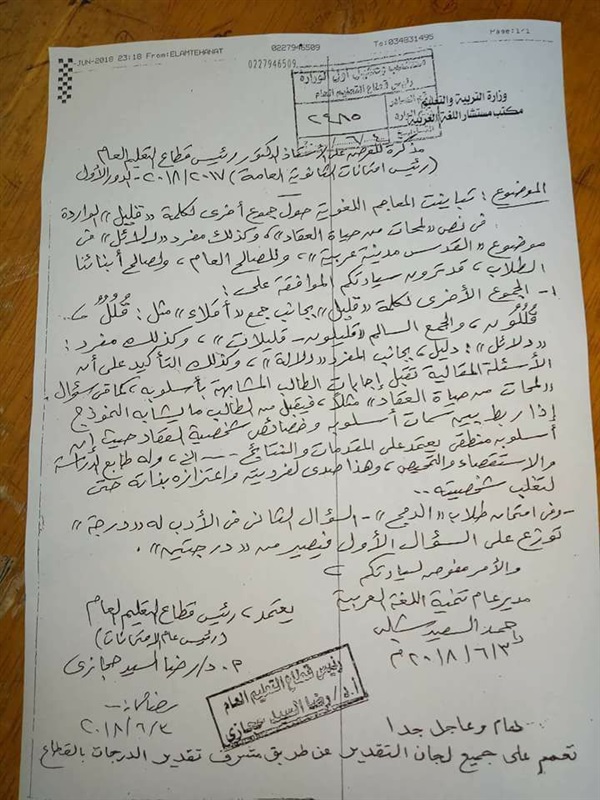 -JUN-2018 23:18 From:ELAMTEHANAT 0227946509 To:034831495 Page:1-1
0227946509
رئيس قطاع التعليم العام
٢٩٨٥
وزارة التربية والتعليم
مكتب مستشار اللغة العربية
مذكرة للعرض على الأستاذ الدكتور رئيس قطاع التعليم العام
(رئيس امتحانات الثانوية العامة) ٢٠١٧/٢٠١٨ - الدور الأول
الموضوع: تباينت المعاجم اللغوية حول جموع أخرى لكلمة "قليل" الواردة
فى نص "لمحات من حياة العقاد"، وكذلك مفرد "دلائل" فى
موضوع "القدس مدينة عربية"، وللصالح العام، ولصالح أبنائنا
الطلاب، قد ترون سيادتكم الموافقة على:
١- الجموع الأخرى لكلمة "قليل" بجانب جمع "أقلاء" مثل: قُلُلٌ
قُلُلُون، والجمع السالم "قليلون - قليلات"، وكذلك مفرد:
"دلائل": دليل، بجانب المفرد "دلالة"، وكذلك التأكيد على أن
الأسئلة المقالية تقبل إجابات الطالب المشابهة بأسلوبه، كما فى سؤال
"لمحات من حياة العقاد" مثلا، فيقبل من الطالب ما يشابه النموذج
إذا ربط بين سمات أسلوبه وخصائص شخصية العقاد حيث إن
أسلوبه منطقى يعتمد على المقدمات والنتائج --- الخ، وله طابع الدراسة
والاستقصاء والتمحيص، وهذا صدى لفرديته واعتزازه بذاته حتى
لتغلب شخصيته..
- وفى امتحان طلاب "الدمج" - السؤال الثانى فى الأدب له "درجة"
توزع على السؤال الأول فيصير من "درجتين".
والأمر مفوض لسيادتكم
مدير عام تنمية اللغة العربية
يعتمد، رئيس قطاع التعليم العام
(رئيس عام الامتحانات)
أ.د/ رضا السيد حجازى
٢٠١٨/٦/٣ م
رئيس قطاع التعليم العام
أ.د/ رضا السيد حجازى
٢٠١٨/٦/٣
هام وعاجل جدا
تعمم على جميع لجان التقدير عن طريق مشرف تقدير الدرجات بالقطاع